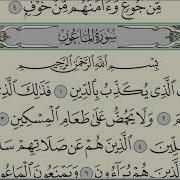 مِّن جُوعٍ وَءَامَنَهُم مِّنْ خَوْفٍ ٤
سُورَةُ المَاعُونِ
بِسْمِ ٱللَّهِ ٱلرَّحْمَٰنِ ٱلرَّحِيمِ
ٱلَّذِى يُكَذِّبُ بِٱلدِّينِ ١ فَذَٰلِكَ
٢ وَلَا يَحُضُّ عَلَىٰ طَعَامِ ٱلْمِسْكِينِ
ٱلَّذِينَ هُمْ عَن صَلَاتِهِمْ
هُمْ يُرَآءُونَ ٦ وَيَمْنَعُونَ